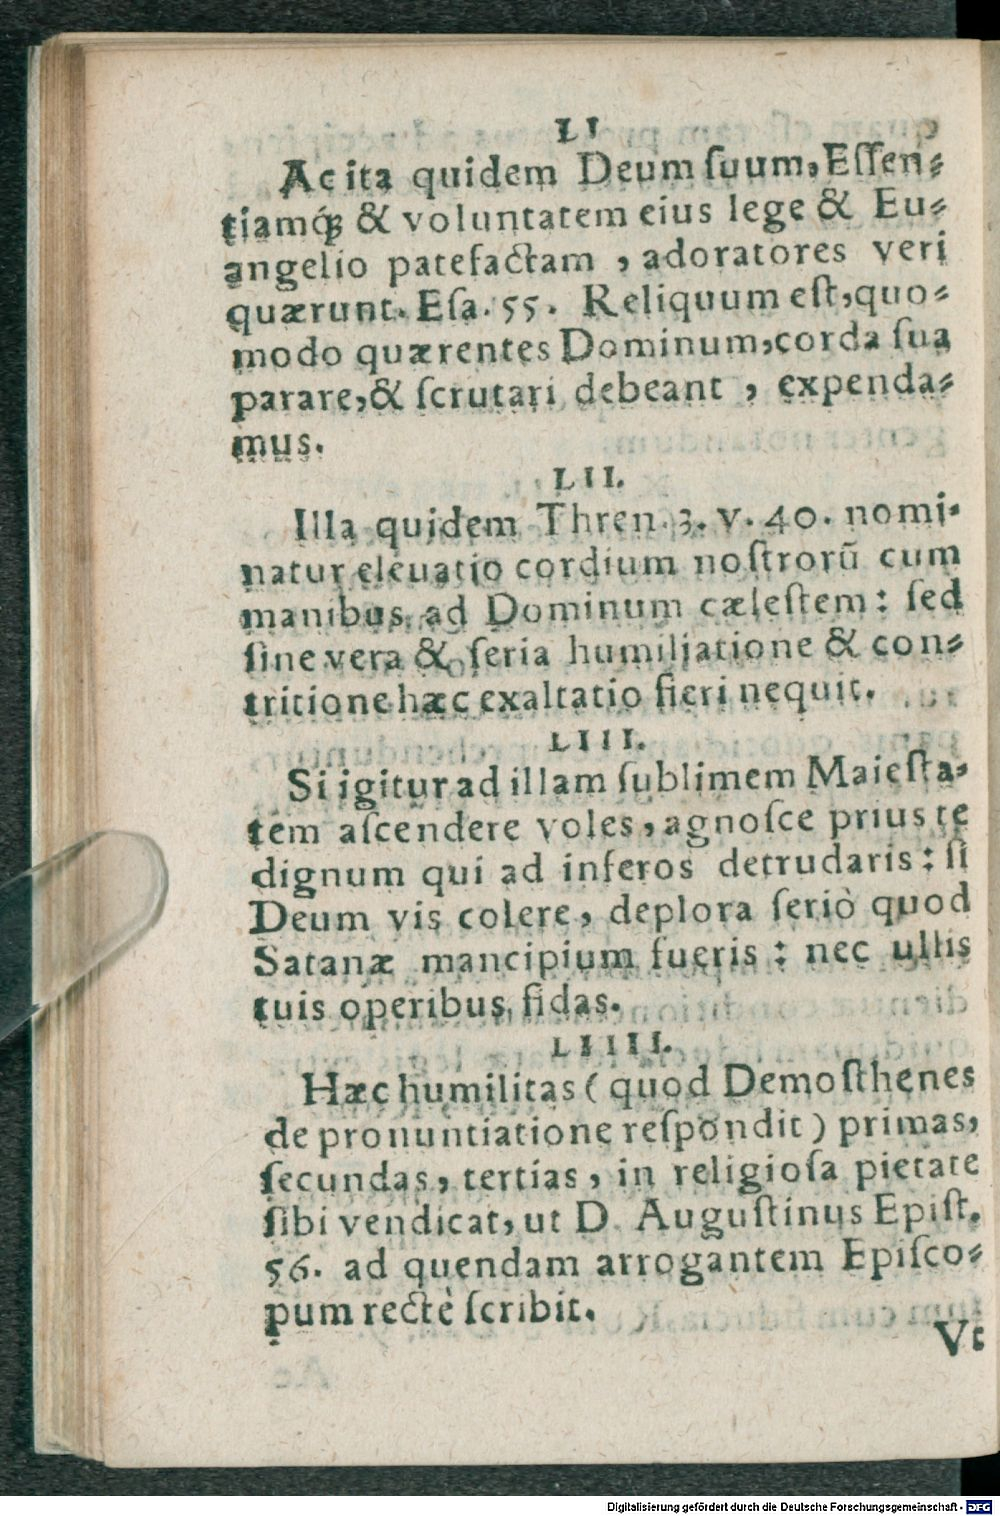 LI
Ac ita quidem Deum ſuum, Eſſen-
tiamq́; & voluntatem eius lege & Eu-
angelio patefactam, adoratores veri
quærunt. Eſa. 55. Reliquum eſt, quo-
modo quærentes Dominum, corda ſua
parare, & ſcrutari debeant, expenda-
mus.
LII.
Illa quidem Thren. 3. v. 40. nomi-
natur eleuatio cordium noſtrorū cum
manibus ad Dominum cæleſtem: ſed
ſine vera & ſeria humiliatione & con-
tritione hæc exaltatio fieri nequit.
LIII.
Si igitur ad illam ſublimem Maieſta-
tem aſcendere voles, agnoſce prius te
dignum qui ad inferos detrudaris: ſi
Deum vis colere, deplora ſeriò quod
Satanæ mancipium fueris: nec ullis
tuis operibus fidas.
LIIII.
Hæc humilitas (quod Demoſthenes
de pronuntiatione reſpondit) primas,
ſecundas, tertias, in religioſa pietate
ſibi vendicat, ut D. Auguſtinus Epiſt.
56. ad quendam arrogantem Epiſco-
pum rectè ſcribit.
Vt
Digitalisierung gefördert durch die Deutsche Forschungsgemeinschaft - DFG